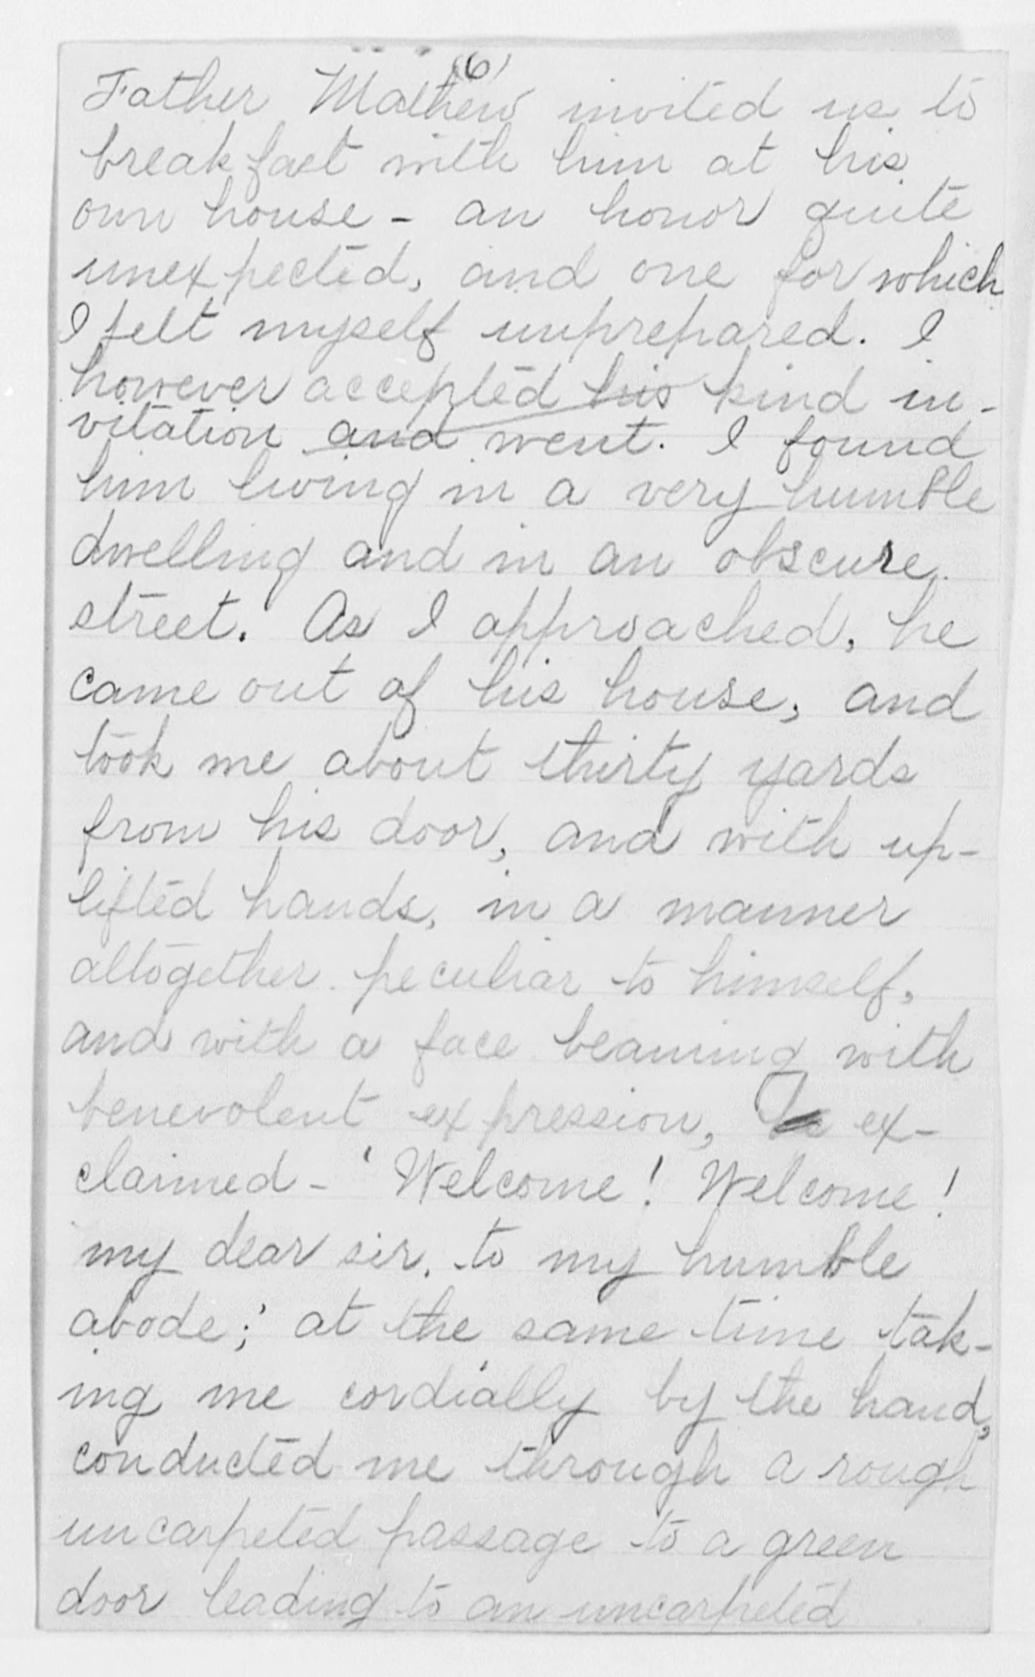 (6)
Father Mathew invited us to
breakfast with him at his
own house - an honor quite
unexpected, and one for which
I felt myself unprepared. I
however accepted his kind in-
vitation and went. I found
him living in a very humble
dwelling and in an obscure
street. As I approached, he
came out of his house, and
took me about thirty yards
from his door, and with up-
lifted hands, in a manner
altogether peculiar to himself,
and with a face beaming with
benevolent expression, he ex-
claimed - 'Welcome! Welcome!
my dear sir, to my humble
abode;' at the same time tak-
ing me cordially by the hand,
conducted me through a rough
uncarpeted passage to a green
door leading to an uncarpeted